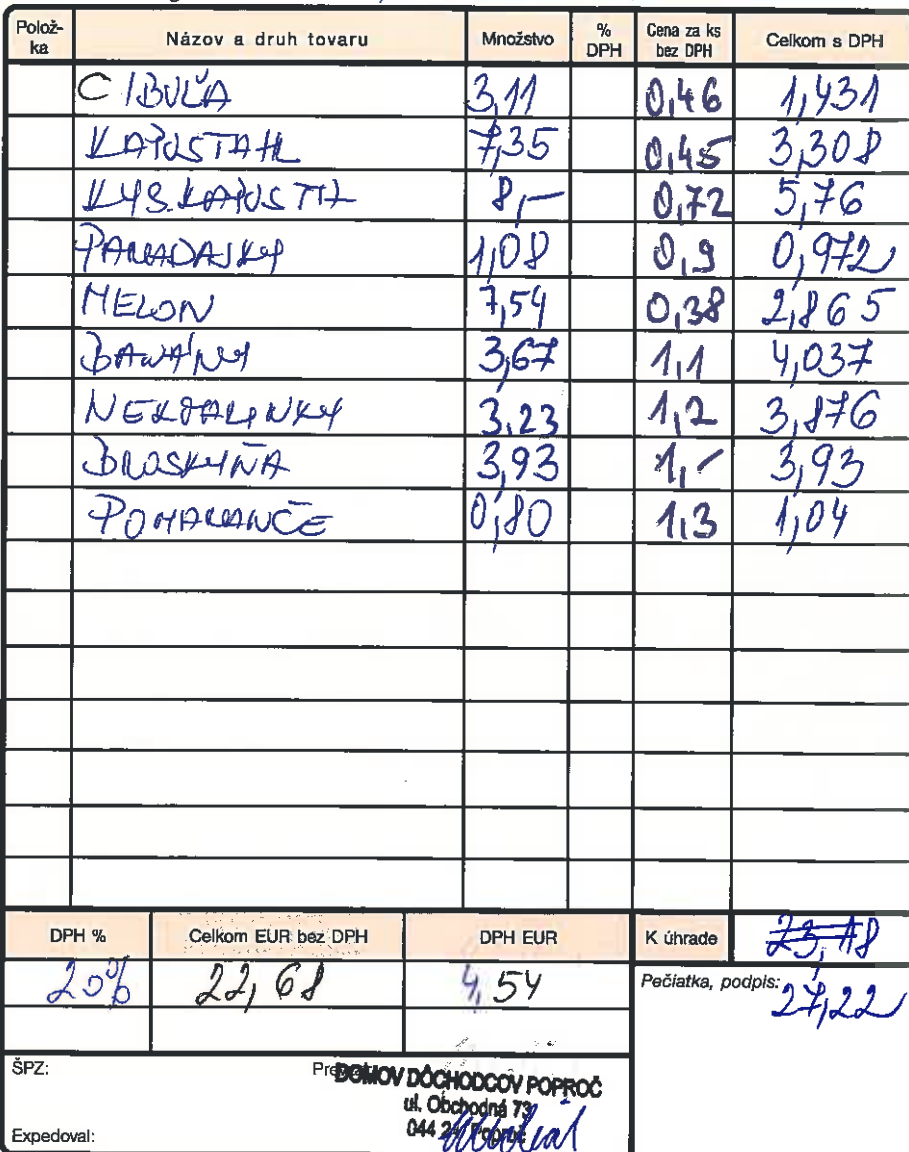 Polož-ka Názov a druh tovaru Množstvo % DPH Cena za ks bez DPH Celkom s DPH
CIBUĽA 3,11 0,46 1,431
KAPUSTA HL 7,35 0,45 3,308
KYS. KAPUSTA 8,- 0,72 5,76
PARADAJKY 1,08 0,9 0,972
MELON 7,54 0,38 2,865
BANÁNY 3,67 1,1 4,037
NEKTARINKY 3,23 1,2 3,876
BROSKYŇA 3,93 1,- 3,93
POMARANČE 0,80 1,3 1,04
DPH % Celkom EUR bez DPH DPH EUR K úhrade
20% 22,68 4,54 Pečiatka, podpis:
27,22
ŠPZ:
DOMOV DÔCHODCOV POPROČ
ul. Obchodná 73
044 24 Poproč
Expedoval: